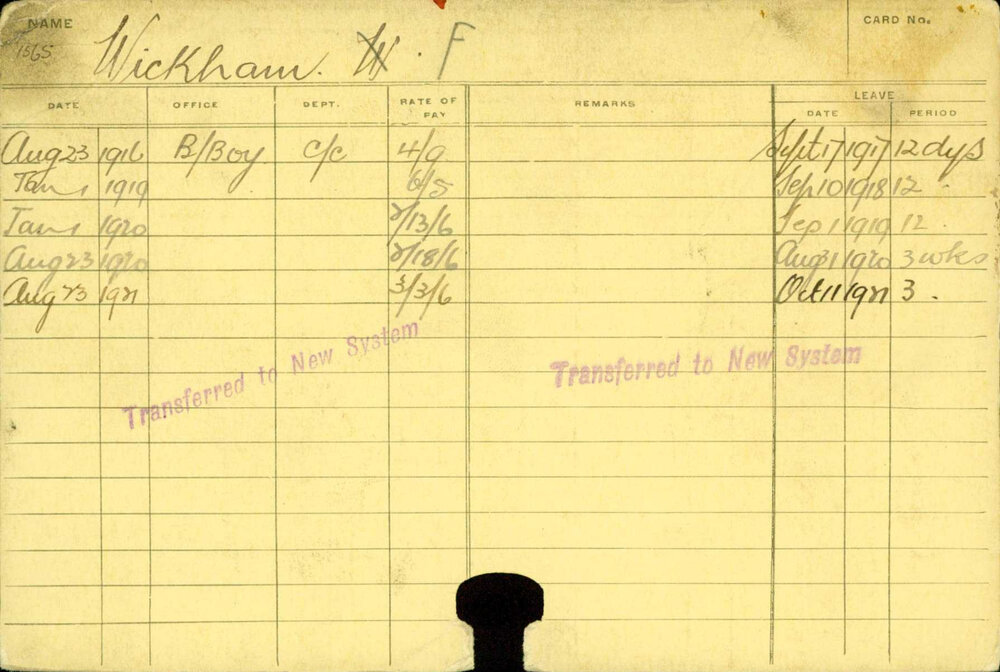 NAME
CARD No.
1565
Wickham. W. F
DATE OFFICE DEPT. RATE OF PAY REMARKS LEAVE
DATE PERIOD
Aug 23 1916 B/Boy C/C 4/9 Sept 17 1917 12 dys
Jan 1 1919 6/5 Sep 10 1918 12
Jan 1 1920 2/13/6 Sep 1 1919 12
Aug 23 1920 2/18/6 Aug 31 1920 3 wks
Aug 23 1921 3/3/6 Oct 11 1921 3
Transferred to New System
Transferred to New System